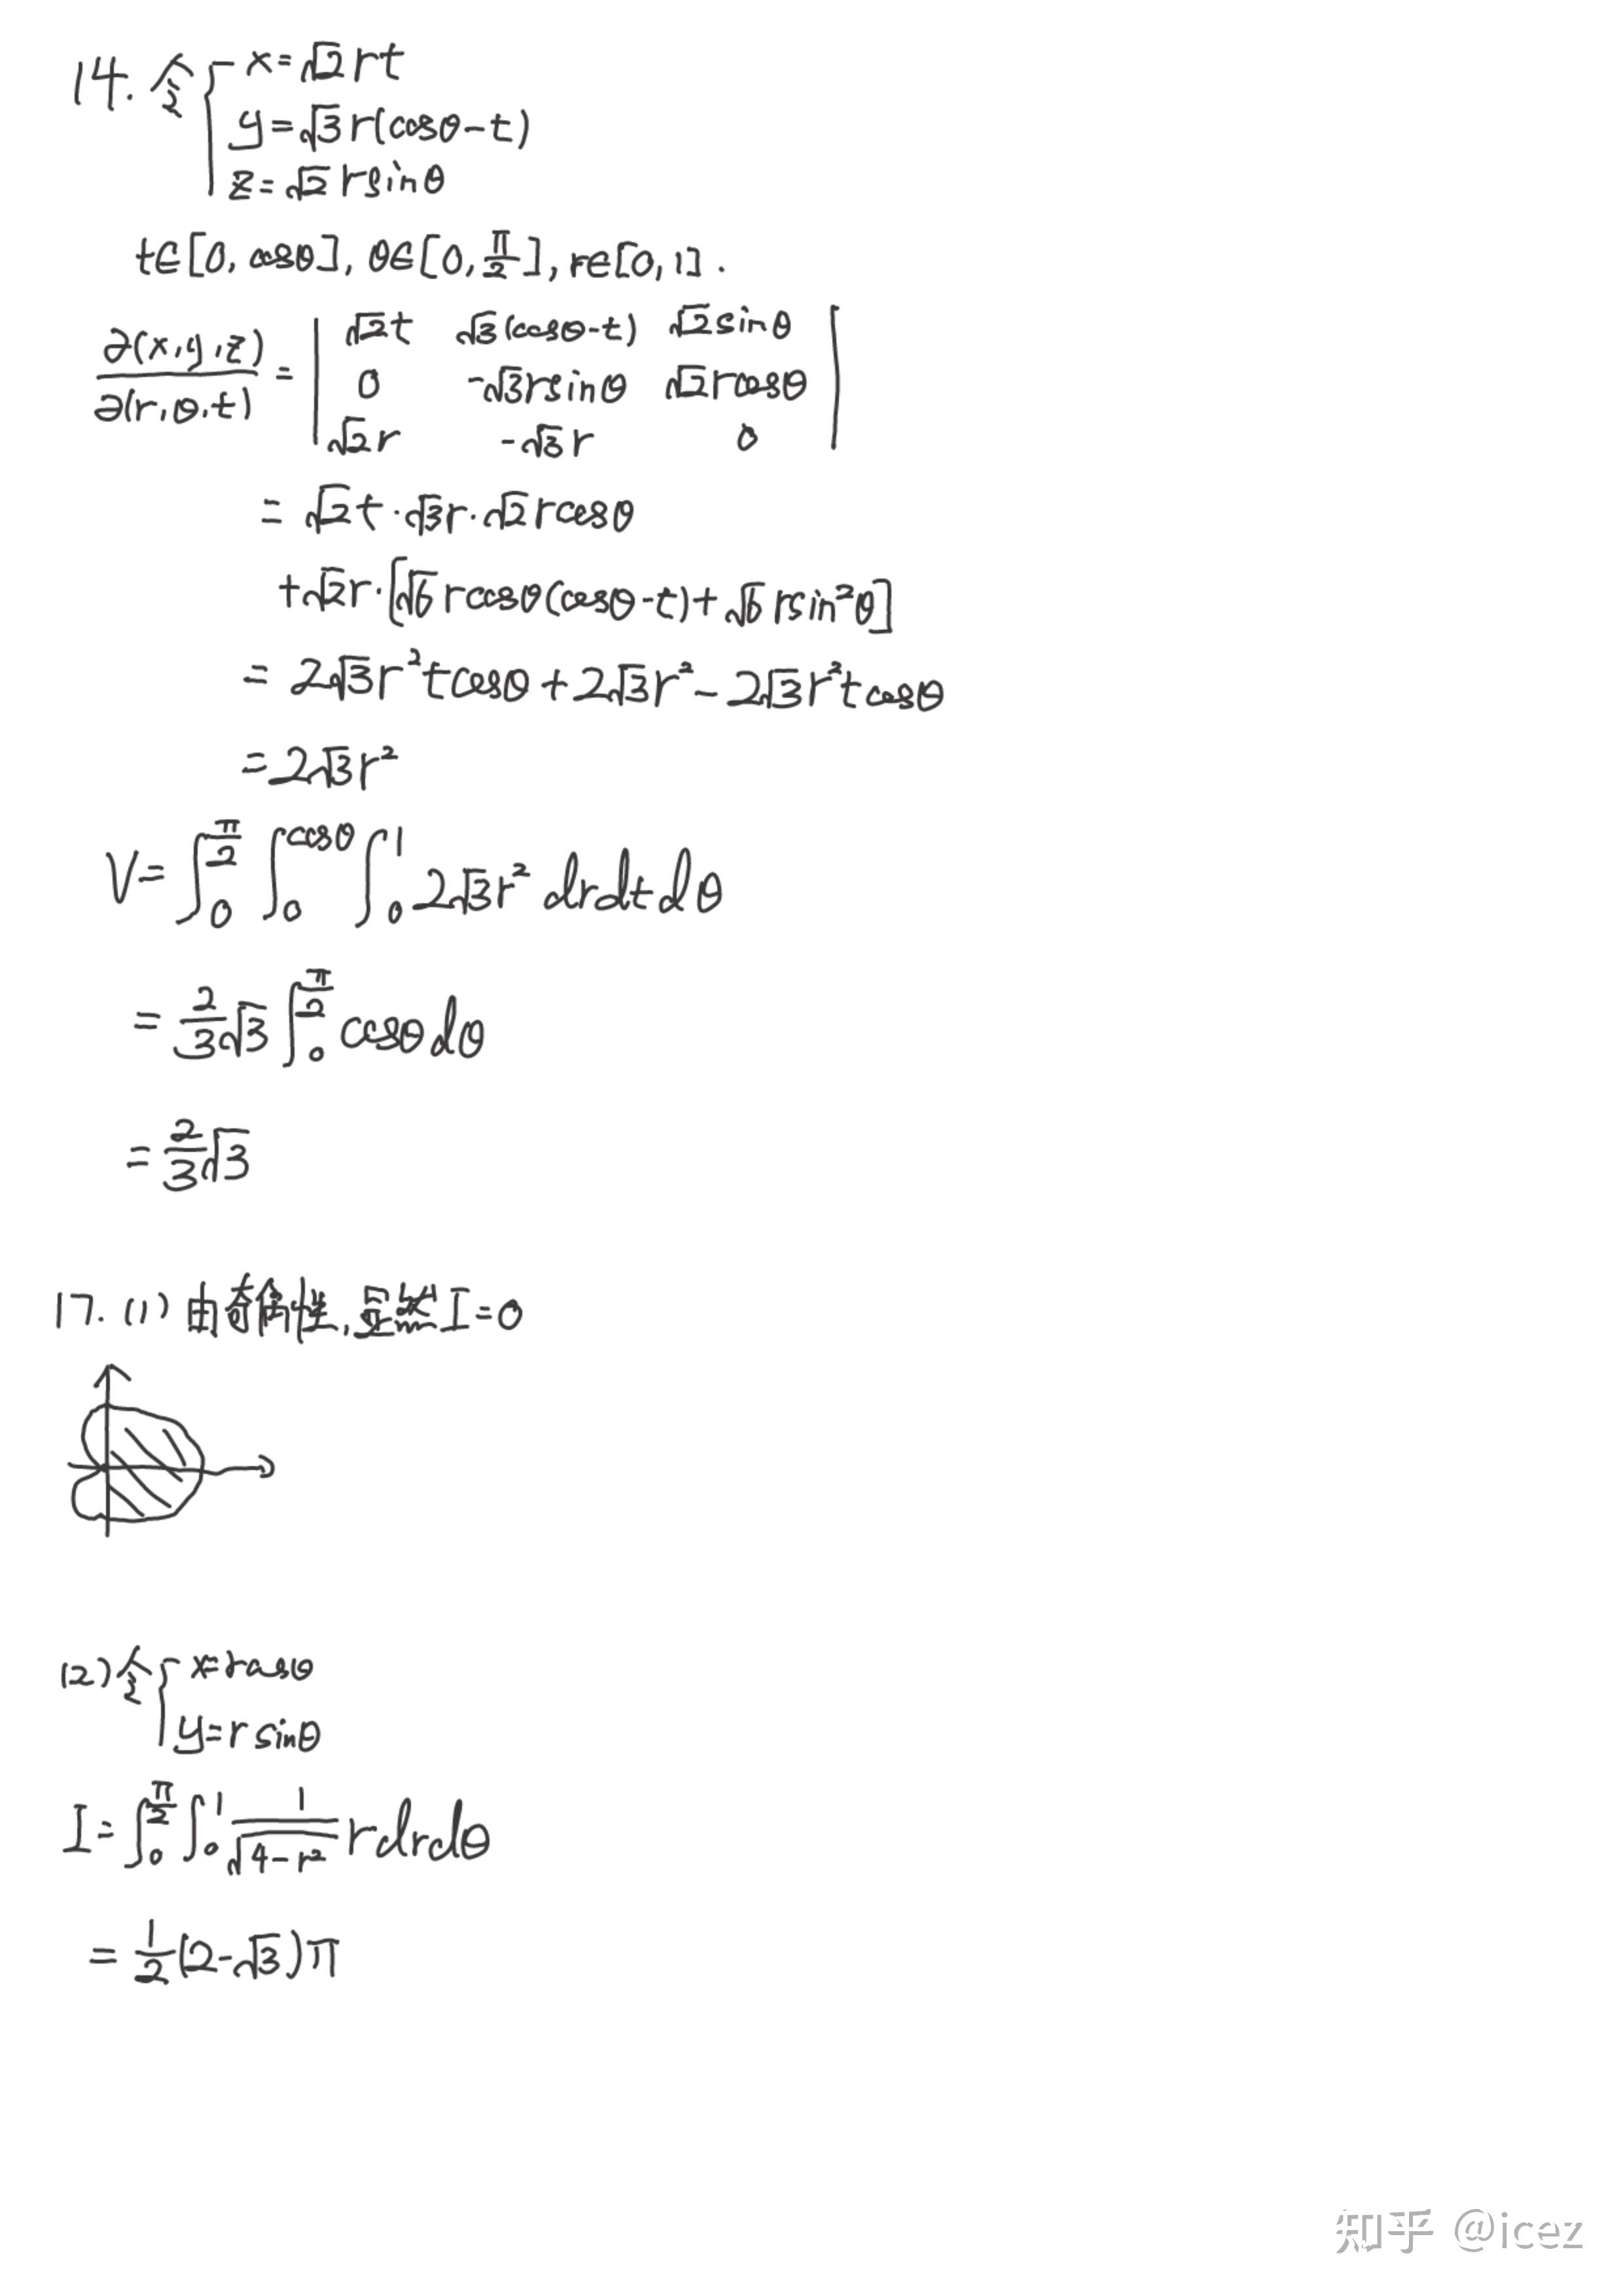 14. 令 { x=√2 rt
y=√3 r(cosθ-t)
z=√2 rsinθ
t∈[0, cosθ], θ∈[0, π/2], r∈[0, 1].
∂(x,y,z)/∂(r,θ,t) = | √2t √3(cosθ-t) √2sinθ |
| 0 -√3rsinθ √2rcosθ |
| √2r -√3r 0 |
= √2t·√3r·√2rcosθ
+√2r·[√6rcosθ(cosθ-t)+√6rsin²θ]
= 2√3r²tcosθ+2√3r²-2√3r²tcosθ
=2√3r²
V=∫₀^(π/2) ∫₀^(cosθ) ∫₀^1 2√3r² drdtdθ
= 2/3 √3 ∫₀^(π/2) cosθdθ
= 2/3 √3
17. (1) 由奇偶性, 显然 I=0
(2) 令 { x=rcosθ
y=r sinθ
I=∫₀^(π/2) ∫₀^1 1/√(4-r²) rdrdθ
= 1/2 (2-√3)π
知乎 @icez